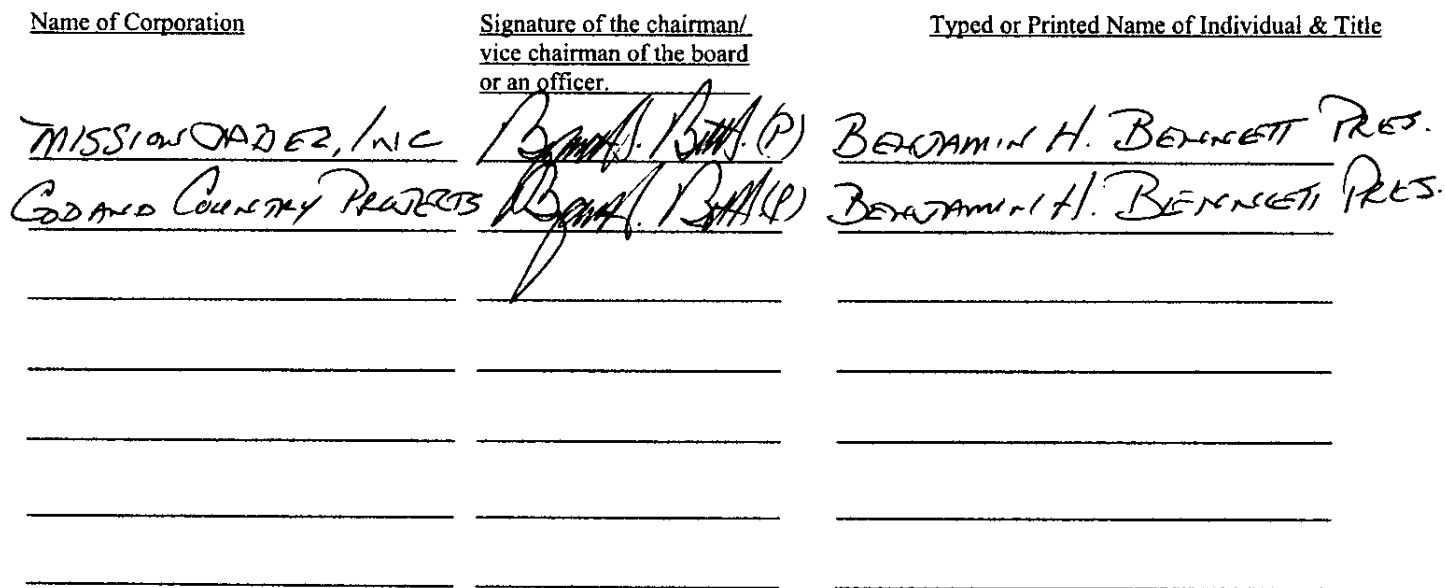 Name of Corporation
Signature of the chairman/
vice chairman of the board
or an officer.
Typed or Printed Name of Individual & Title
MISSION JABEZ, INC (P) BENJAMIN H. BENNETT PRES.
GOD AND COUNTRY PROJECTS (P) BENJAMIN H. BENNETT PRES.